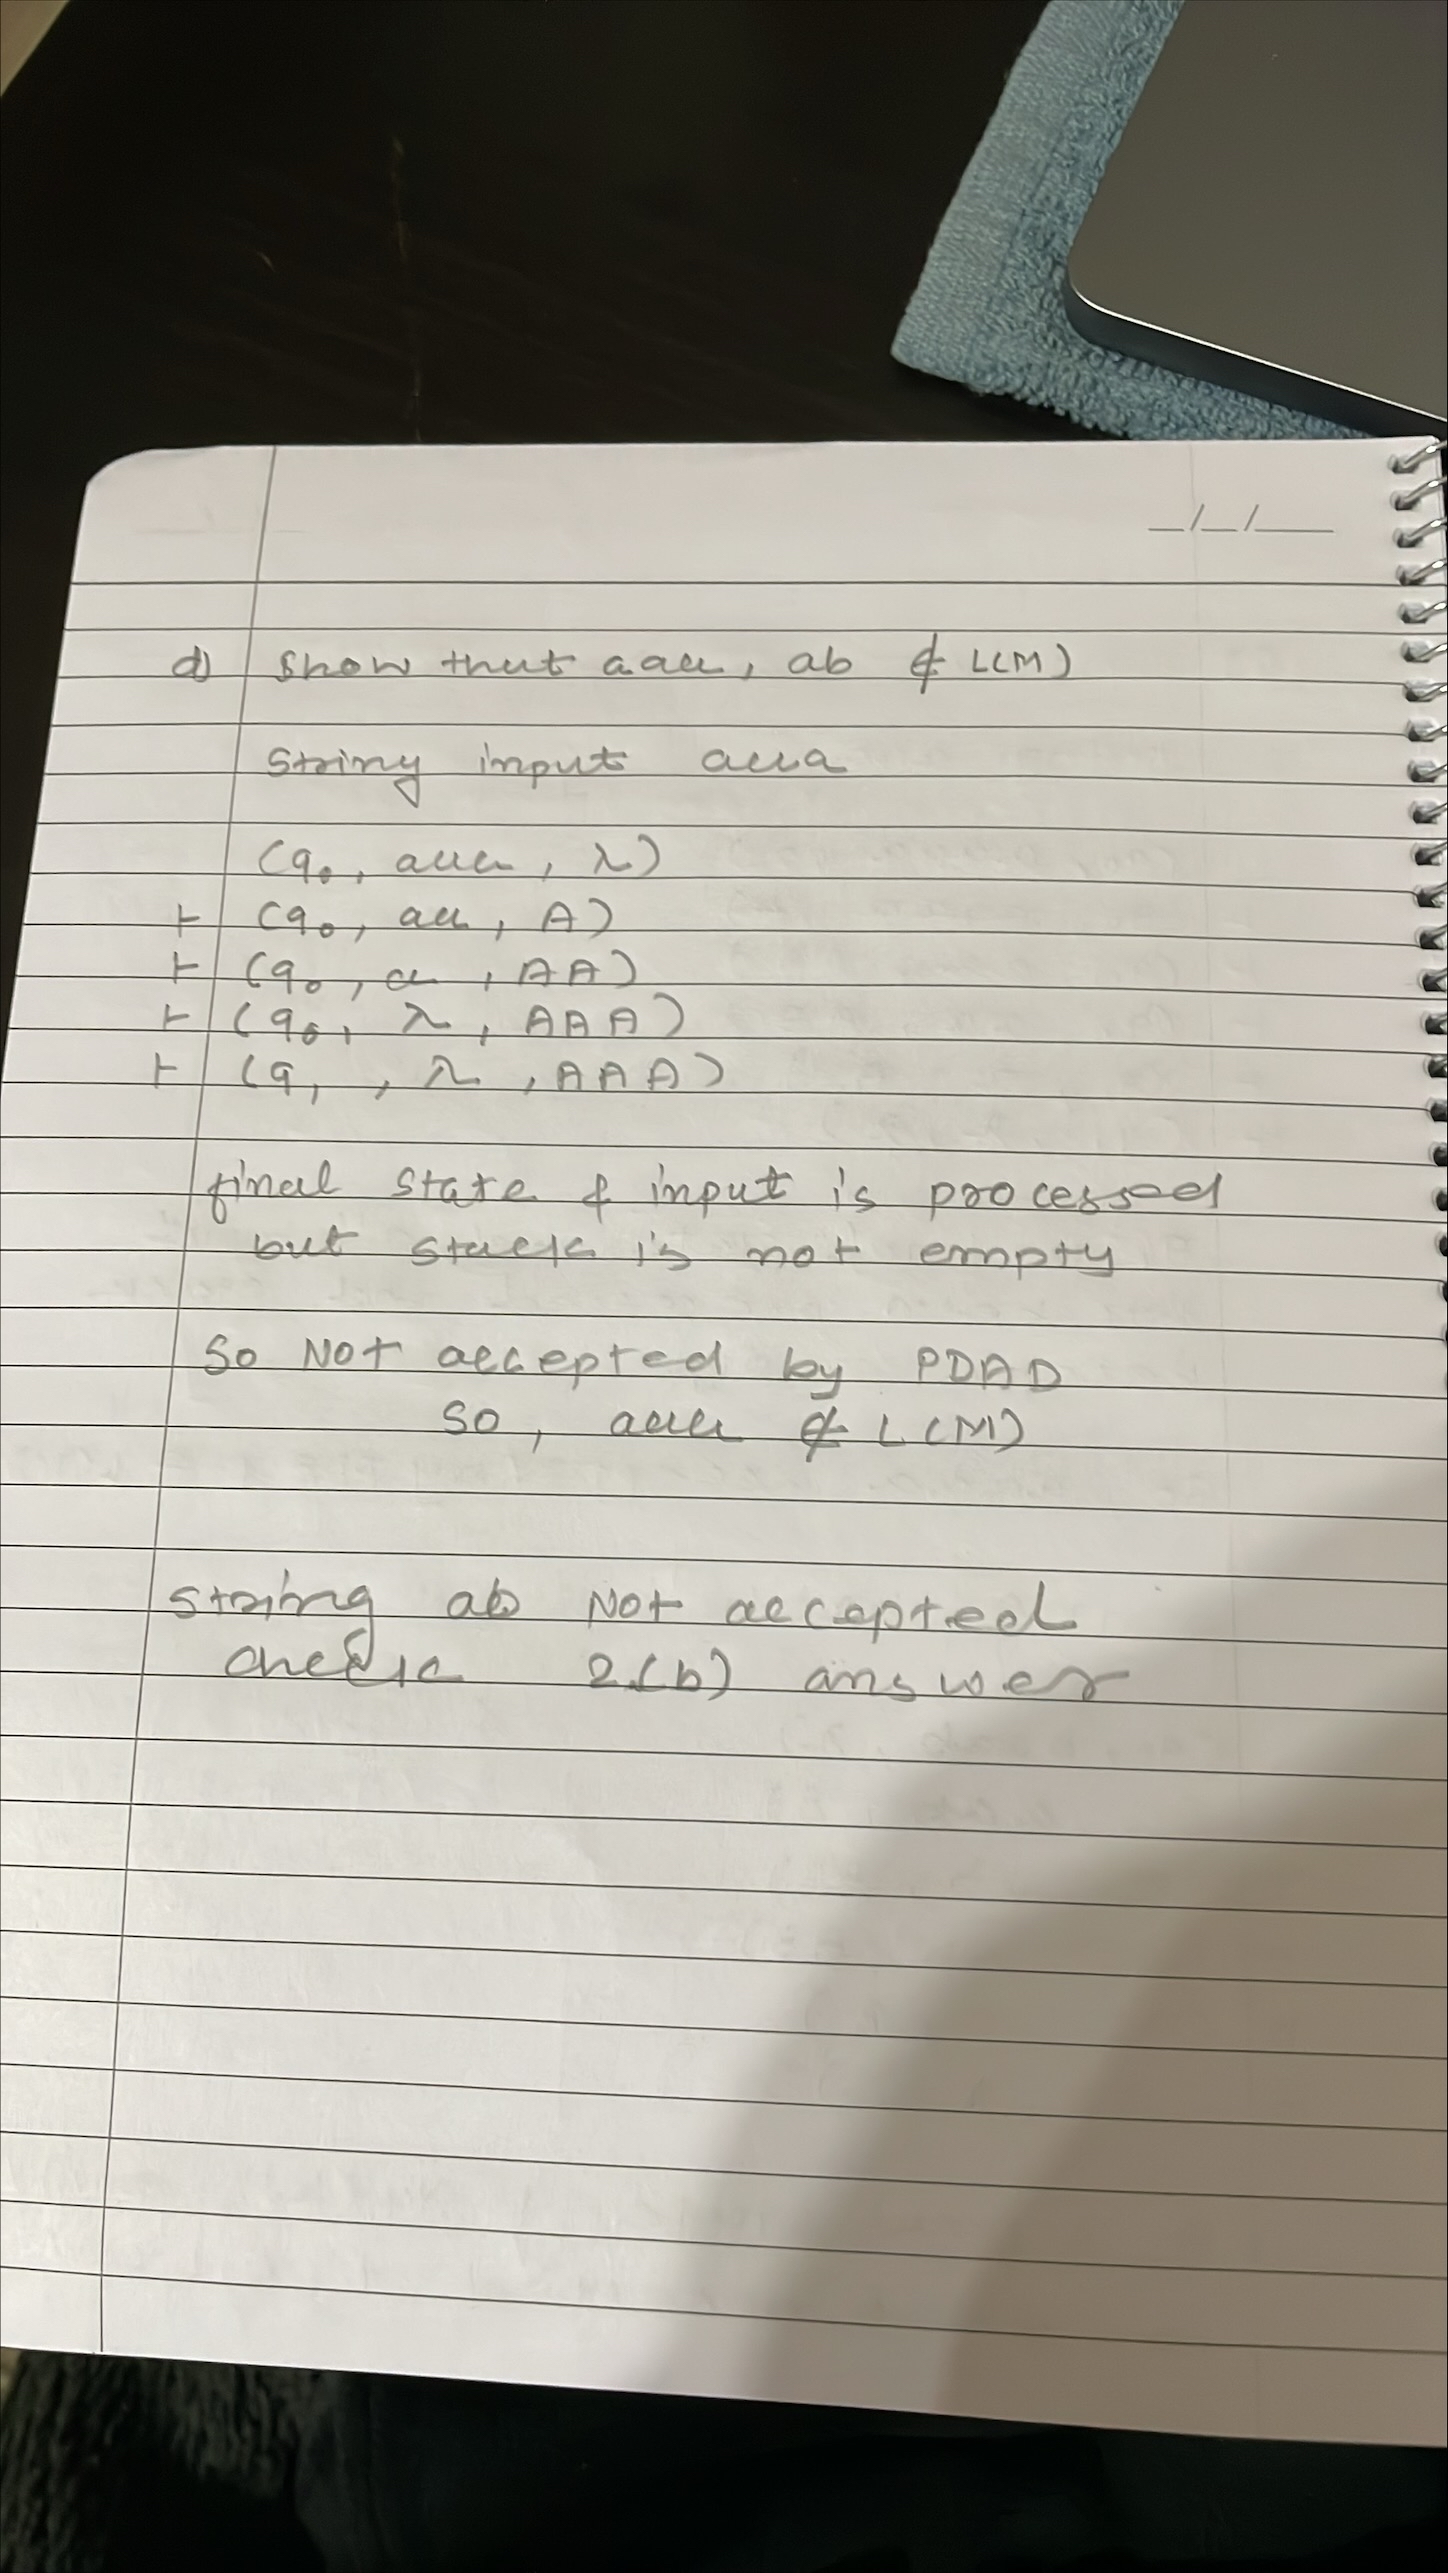 _/_/__
d) show that aaa, ab ∉ L(M)
String input aaa
(q₀, aaa, λ)
⊢ (q₀, aa, A)
⊢ (q₀, a, AA)
⊢ (q₀, λ, AAA)
⊢ (q₁, λ, AAA)
final state & input is processed
but stack is not empty
So NOT accepted by PDAD
so, aaa ∉ L(M)
string ab NOT accepted
check 2.(b) answer